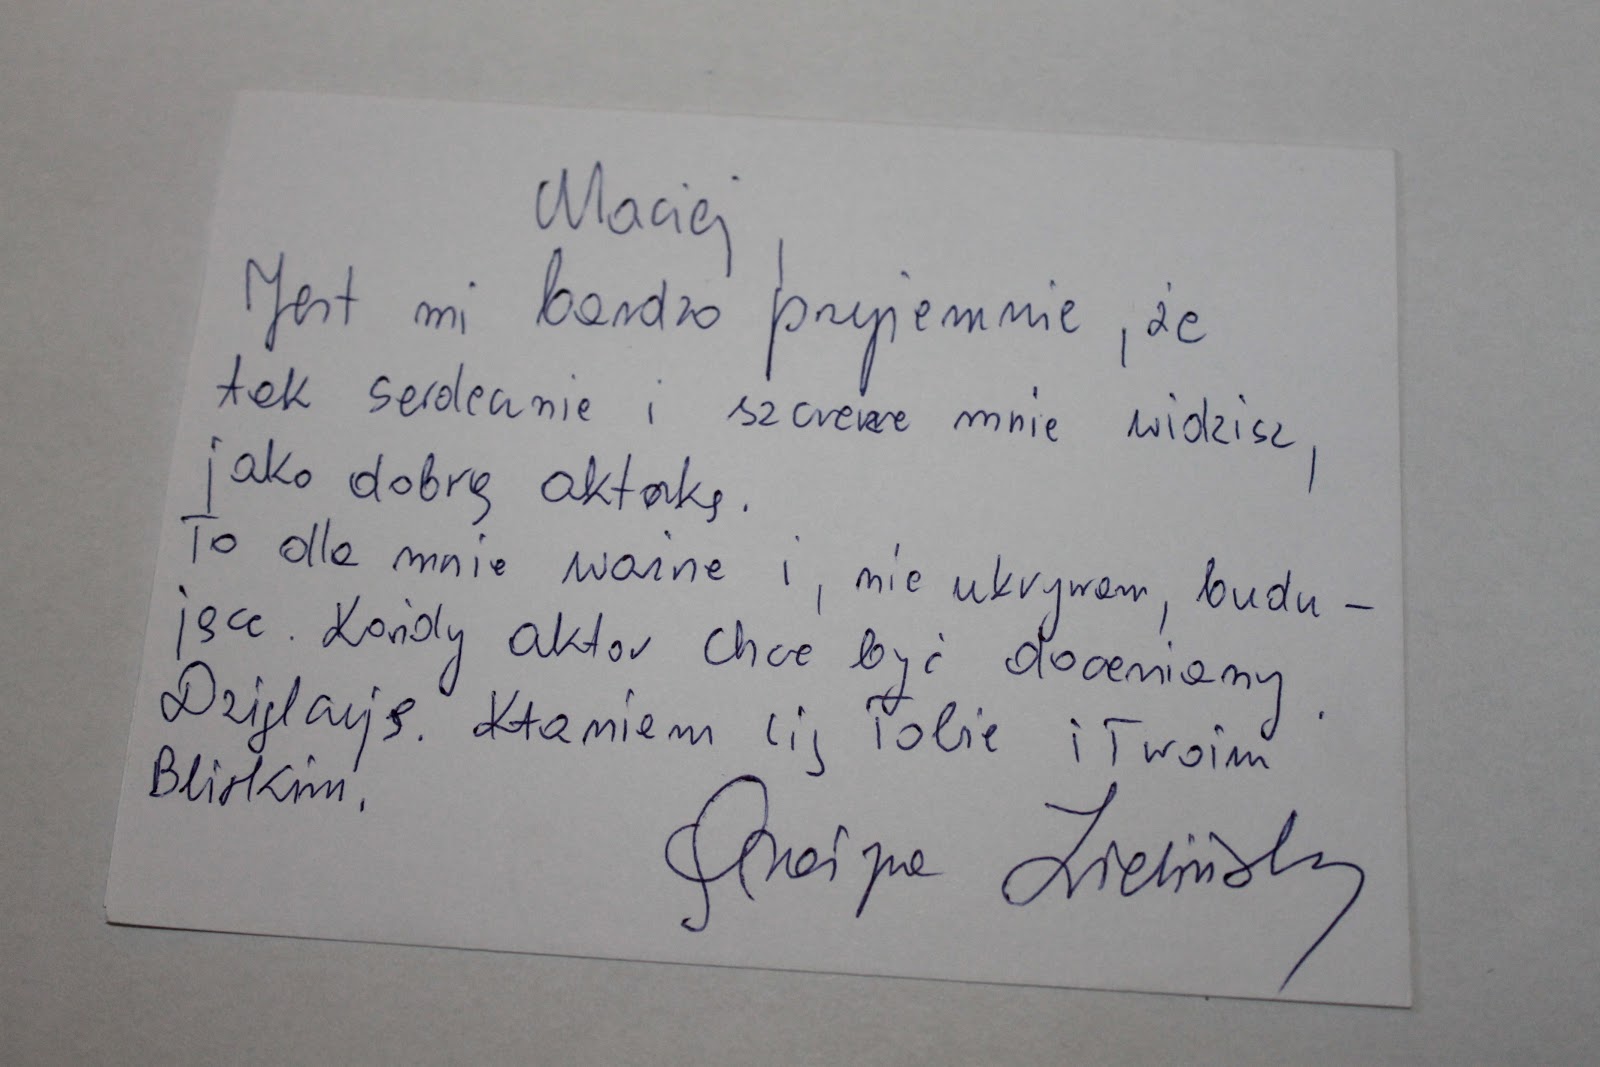 Maciej,
Jest mi bardzo przyjemnie, że
tak serdecznie i szczerze mnie widzisz,
jako dobrą aktorkę.
To dla mnie ważne i, nie ukrywam, budu-
jące. Każdy aktor chce być doceniany.
Dziękuję. Kłaniam się Tobie i Twoim
Bliskim.
Grażyna Zielińska